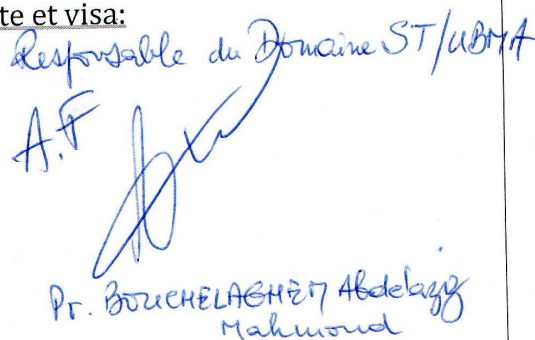 te et visa:
Responsable du Domaine ST/UBMA
A.F
Pr. BOUCHELAGHEM Abdelaziz
Mahmoud